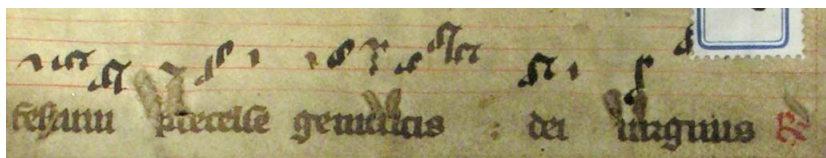 precelse genitricis : dei virginis R